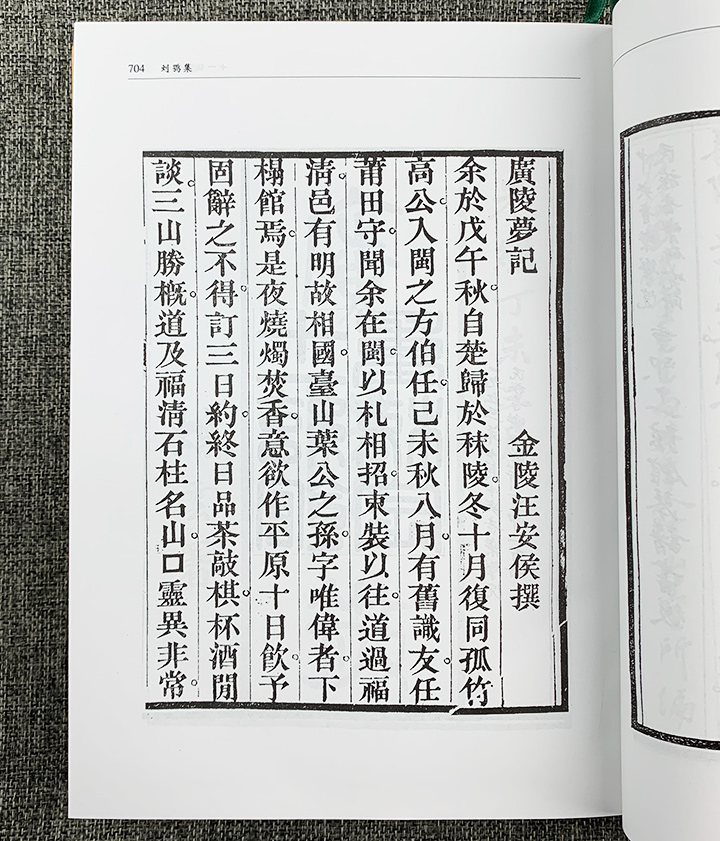 704 刘鹗集
廣陵夢記 金陵汪安侯撰
余於戊午秋。自楚歸於秣陵。冬十月復同孤竹
高公。入閩之方伯任。己未秋八月。有舊識友。任
莆田守。聞余在閩。以札相招。束裝以往。道過福
淸。邑有明故相國。臺山葉公之孫。字唯偉者。下
榻館焉。是夜燒燭焚香。意欲作平原十日飮。予
固辭之不得。訂三日約。終日品茶敲棋。杯酒閒
談。三山勝槪。道及福淸石柱名山。口靈異非常。